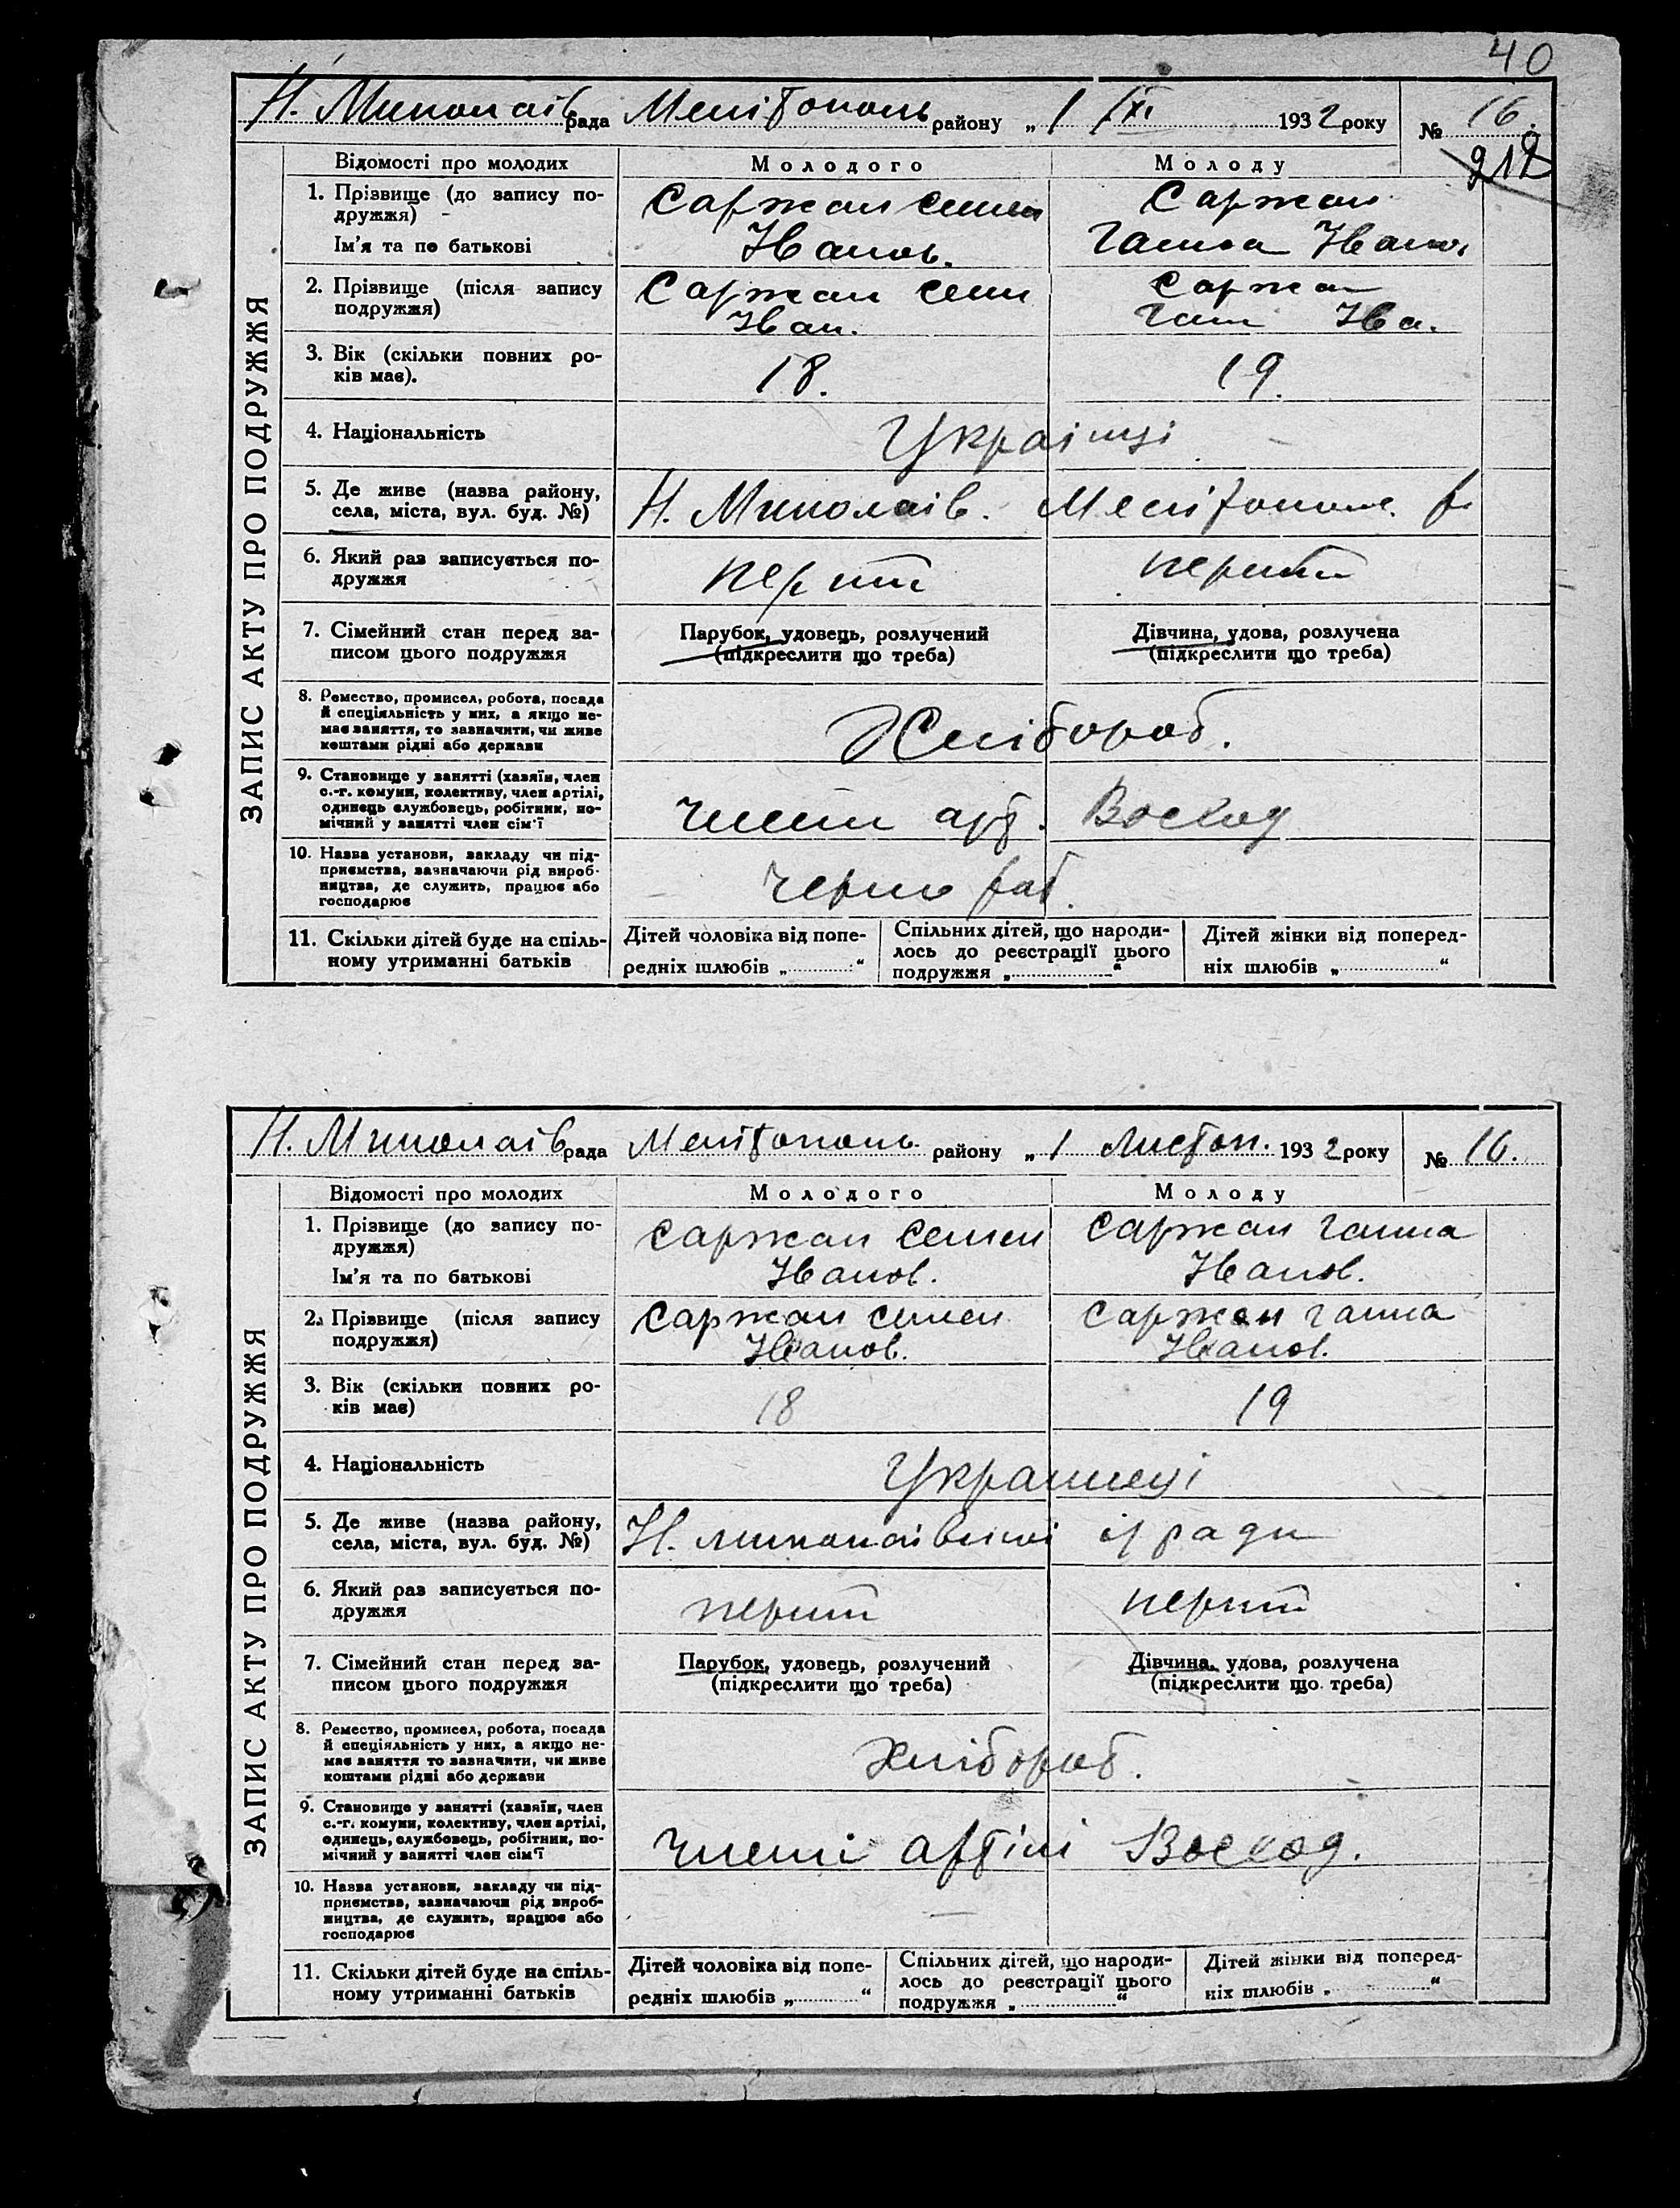 40
Н. Миколаїв рада Мелітополь району „ 1 /XI 1932 року № 16.
212
ЗАПИС АКТУ ПРО ПОДРУЖЖЯ
Відомості про молодих Молодого Молоду
1. Прізвище (до запису по-
дружжя)
Ім'я та по батькові
Саржан Семен
Іванов.
Саржан
Ганна Іванов.
2. Прізвище (після запису
подружжя)
Саржан Семн
Іван.
Саржан
Ганн Іва.
3. Вік (скільки повних ро-
ків має).
18. 19.
4. Національність
Українці
5. Де живе (назва району,
села, міста, вул. буд. №)
Н. Миколаїв. Мелітополь. р.
6. Який раз записується по-
дружжя
перший перший
7. Сімейний стан перед за-
писом цього подружжя
Парубок, удовець, розлучений
(підкреслити що треба)
Дівчина, удова, розлучена
(підкреслити що треба)
8. Ремество, промисел, робота, посада
й спеціяльність у них, а якщо не-
має заняття, то зазначити, чи живе
коштами рідні або держави
Хлібороб.
9. Становище у занятті (хазяїн, член
с.-г. комуни, колективу, член артілі,
одинець службовець, робітник, по-
мічний у занятті член сім'ї
члени арт. Восход
10. Назва установи, закладу чи під-
приємства, зазначаючи рід вироб-
ництва, де служить, працює або
господарює
черно раб.
11. Скільки дітей буде на спіль-
ному утриманні батьків
Дітей чоловіка від попе-
редніх шлюбів „............“
Спільних дітей, що народи-
лось до реєстрації цього
подружжя „............“
Дітей жінки від поперед-
ніх шлюбів „............“
Н. Миколаїв рада Мелітополь району „ 1 Листоп. 1932 року № 16.
ЗАПИС АКТУ ПРО ПОДРУЖЖЯ
Відомості про молодих Молодого Молоду
1. Прізвище (до запису по-
дружжя)
Ім'я та по батькові
Саржан Семен
Іванов.
Саржан Ганна
Іванов.
2. Прізвище (після запису
подружжя)
Саржан Семен
Іванов.
Саржан Ганна
Іванов.
3. Вік (скільки повних ро-
ків має)
18 19
4. Національність
Украинці
5. Де живе (назва району,
села, міста, вул. буд. №)
Н. Миколаівські с/ ради
6. Який раз записується по-
дружжя
перший перший
7. Сімейний стан перед за-
писом цього подружжя
Парубок, удовець, розлучений
(підкреслити що треба)
Дівчина, удова, розлучена
(підкреслити що треба)
8. Ремество, промисел, робота, посада
й спеціяльність у них, а якщо не-
має заняття то зазначити, чи живе
коштами рідні або держави
Хлібороб.
9. Становище у занятті (хазяїн, член
с.-г. комуни, колективу, член артілі,
одинець, службовець, робітник, по-
мічний у занятті член сім'ї
члені артілі Восход.
10. Назва установи, закладу чи під-
приємства, зазначаючи рід вироб-
ництва, де служить, працює або
господарює
—
11. Скільки дітей буде на спіль-
ному утриманні батьків
Дітей чоловіка від попе-
редніх шлюбів „............“
Спільних дітей, що народи-
лось до реєстрації цього
подружжя „............“
Дітей жінки від поперед-
ніх шлюбів „............“